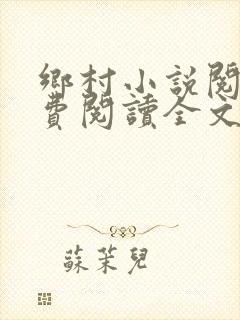 鄉村小説閱
費閱讀全文
蘇茉兒